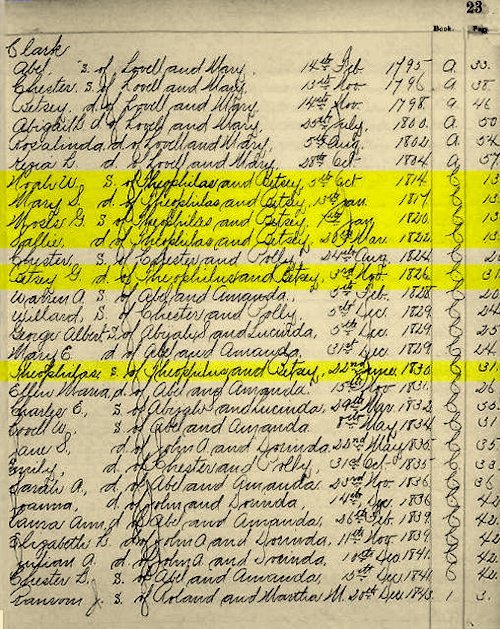 23
Book. Page
Clark
Abel, S. of Lovell and Mary, 14th Feb 1795 A. 33.
Chester, S. of Lovell and Mary, 13th Nov 1796 A. 38.
Betsey, d. of Lovell and Mary, 14th Nov. 1798 A. 46
Abigail B. d. of Lovell and Mary, 25th July, 1800. A. 50
Rosalinda, d. of Lovell and Mary, 5th Aug. 1802. A. 54
d. of Lovell and Mary, 28th Oct 1804. A. 57
Noah W. S. of Theophilas and Betsey, 5th Oct 1814. 13
Mary S. d. of Theophilas and Betsey, Jan. 1817. 13
Moses G. S. of Theophilas and Betsey, Jan 1820. 13
Sallie, d. of Theophilas and Betsey, Mar. 1822. 13
Chester, S. of Chester and Polly, 24th Aug. 1824.
Betsey G. d. of Theophilus and Betsey, 3rd Nov. 1826. 31
Warren A. S. of Abel and Amanda, 5th Feb. 1828.
Willard, S. of Chester and Polly, 5th Dec. 1829.
George Albert S. of Abijah and Lucinda, 5th Dec. 1829.
Mary E. d. of Abel and Amanda, 31st Dec. 1829 24.
Theophilas S. of Theophilus and Betsey, 22nd June, 1830. 31.
Ellen Maria, d. of Abel and Amanda, 15th Nov. 1831.
Charles E, S. of Abijah and Lucinda, 29th Mar. 1832.
Lovell W. S. of Abel and Amanda 8th May 1834 31
Jane S., d. of John A. and Dorinda, 22nd May 1835. 35
Emily, d. of Chester and Polly, 31st Oct 1835 33
Sarah A., d. of Abel and Amanda, 23rd Nov 1836. 36
Joanna, d. of John and Dorinda, 14th Dec. 1836.
Laura Ann, d. of Abel and Amanda, 26th Feb. 1839. 42
Elizabeth B. d. of John A. and Dorinda, 11th Nov 1839. 42
A. d. of John A. and Dorinda, 10th Dec 1841. 42.
Chester L. S. of Abel and Amanda, 15th Dec 1841. 42.
Ransom J. S. of Roland and Martha M. 20th Dec 1843. 1 3.